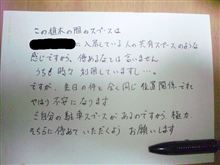 この植木の間のスペースは
に入居している人の共有スペースのような
感じですから、停めるなとは言いません
うちも時々利用していますし…
ですが、先日の件と全く同じ位置関係ですと
やはり不安になります
ご自分の駐車スペースがあるのですから極力
そちらに停めていただくよう お願いします